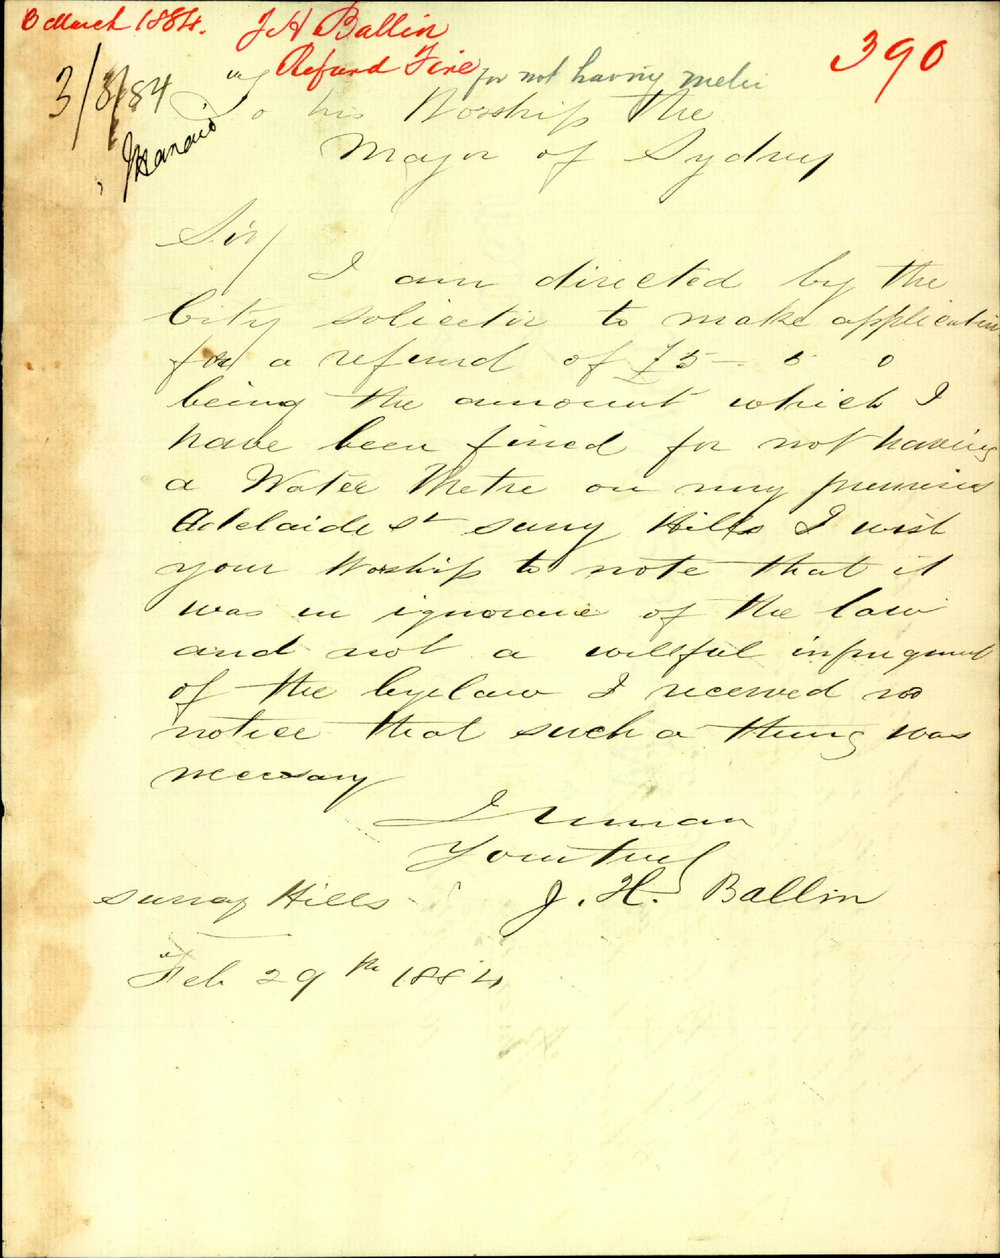 3 March 1884. J H Ballin 390
Refund Fine for not having meter
3/3/84
To his Worship the
Mayor of Sydney
Sir/
I am directed by the
City solicitor to make application
for a refund of £5 - 5 0
being the amount which I
have been fined for not having
a Water Metre on my premises
Adelaide St surry Hills I wish
your Worship to note that it
was in ignorance of the law
and not a willful infringment
of the byelaw I received no
notice that such a thing was
necessary
I remain
Yours truly
Surray Hills - J. H. Ballin
Feb 29th 1884